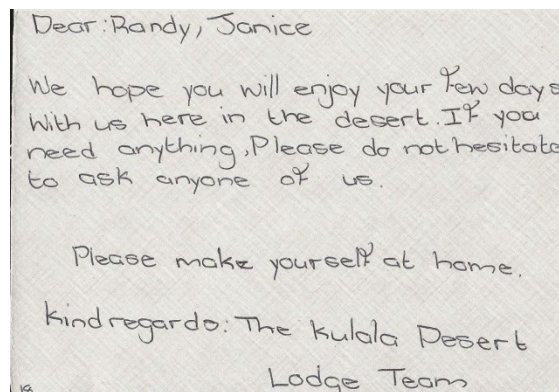 Dear: Randy, Janice
We hope you will enjoy your few days
With us here in the desert. If you
need anything, Please do not hesitate
to ask anyone of us.
Please make yourself at home.
kind regards: The Kulala Desert
Lodge Team